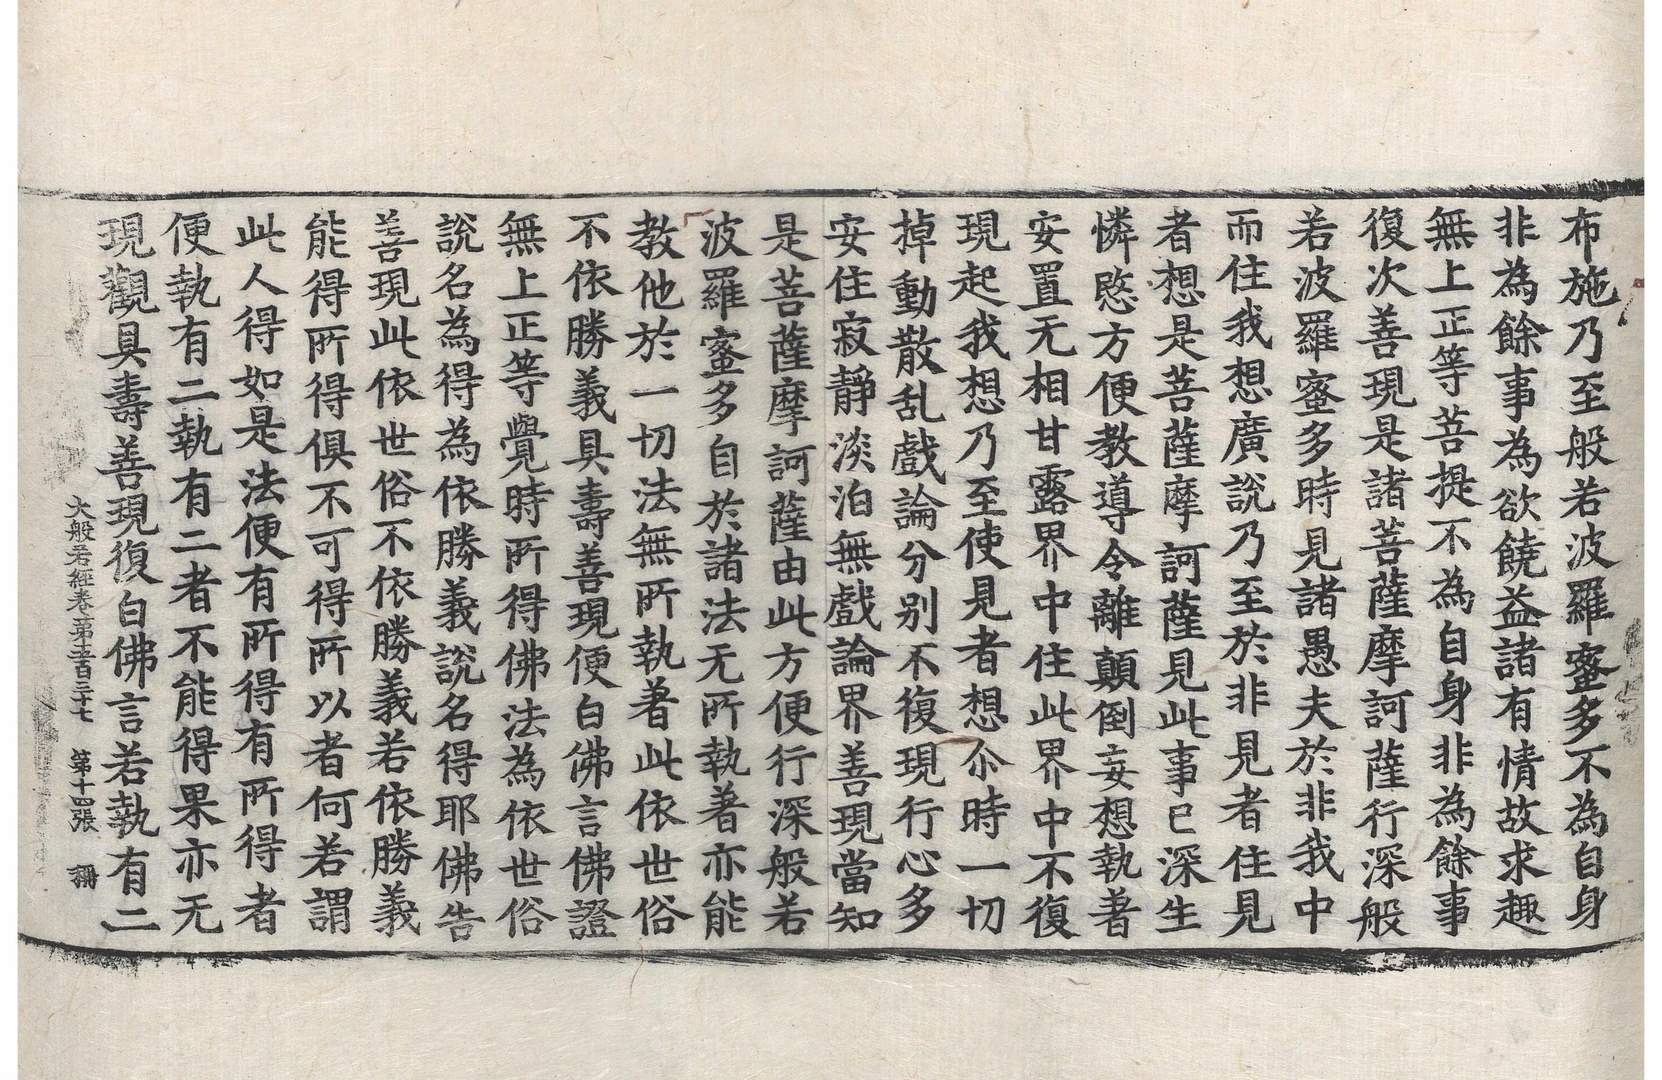 布施乃至般若波羅蜜多不為自身
非為餘事為欲饒益諸有情故求趣
無上正等菩提不為自身非為餘事
復次善現是諸菩薩摩訶薩行深般
若波羅蜜多時見諸愚夫於非我中
而住我想廣說乃至於非見者住見
者想是菩薩摩訶薩見此事已深生
憐愍方便教導令離顛倒妄想執著
安置无相甘露界中住此界中不復
現起我想乃至使見者想尒時一切
掉動散乱戲論分別不復現行心多
安住寂靜淡泊無戲論界善現當知
是菩薩摩訶薩由此方便行深般若
波羅蜜多自於諸法无所執著亦能
教他於一切法無所執著此依世俗
不依勝義具壽善現便白佛言佛證
無上正等覺時所得佛法為依世俗
說名為得為依勝義說名得耶佛告
善現此依世俗不依勝義若依勝義
能得所得俱不可得所以者何若謂
此人得如是法便有所得有所得者
便執有二執有二者不能得果亦无
現觀具壽善現復白佛言若執有二
大般若經卷第五百三十七 第十四張